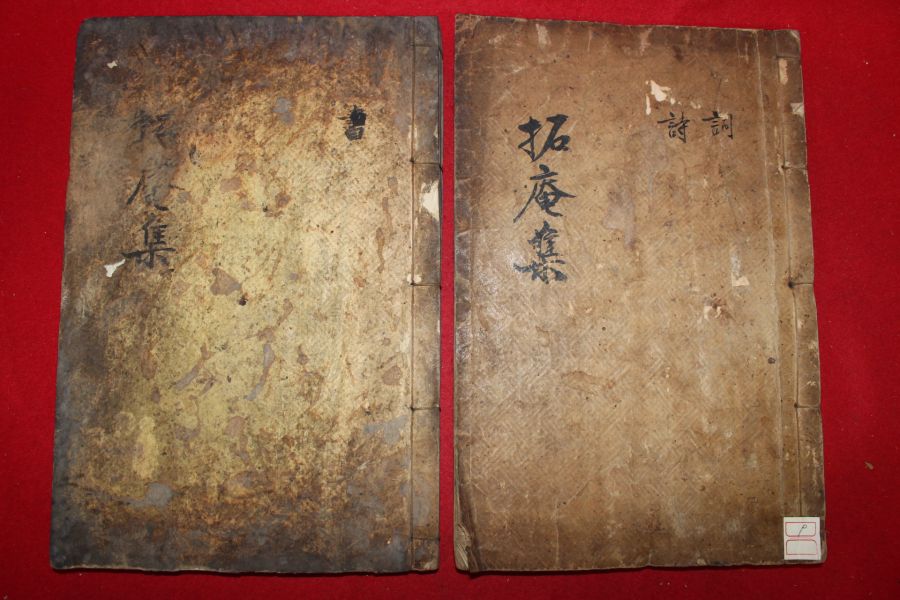 詞
詩
拓庵集
書
拓庵集